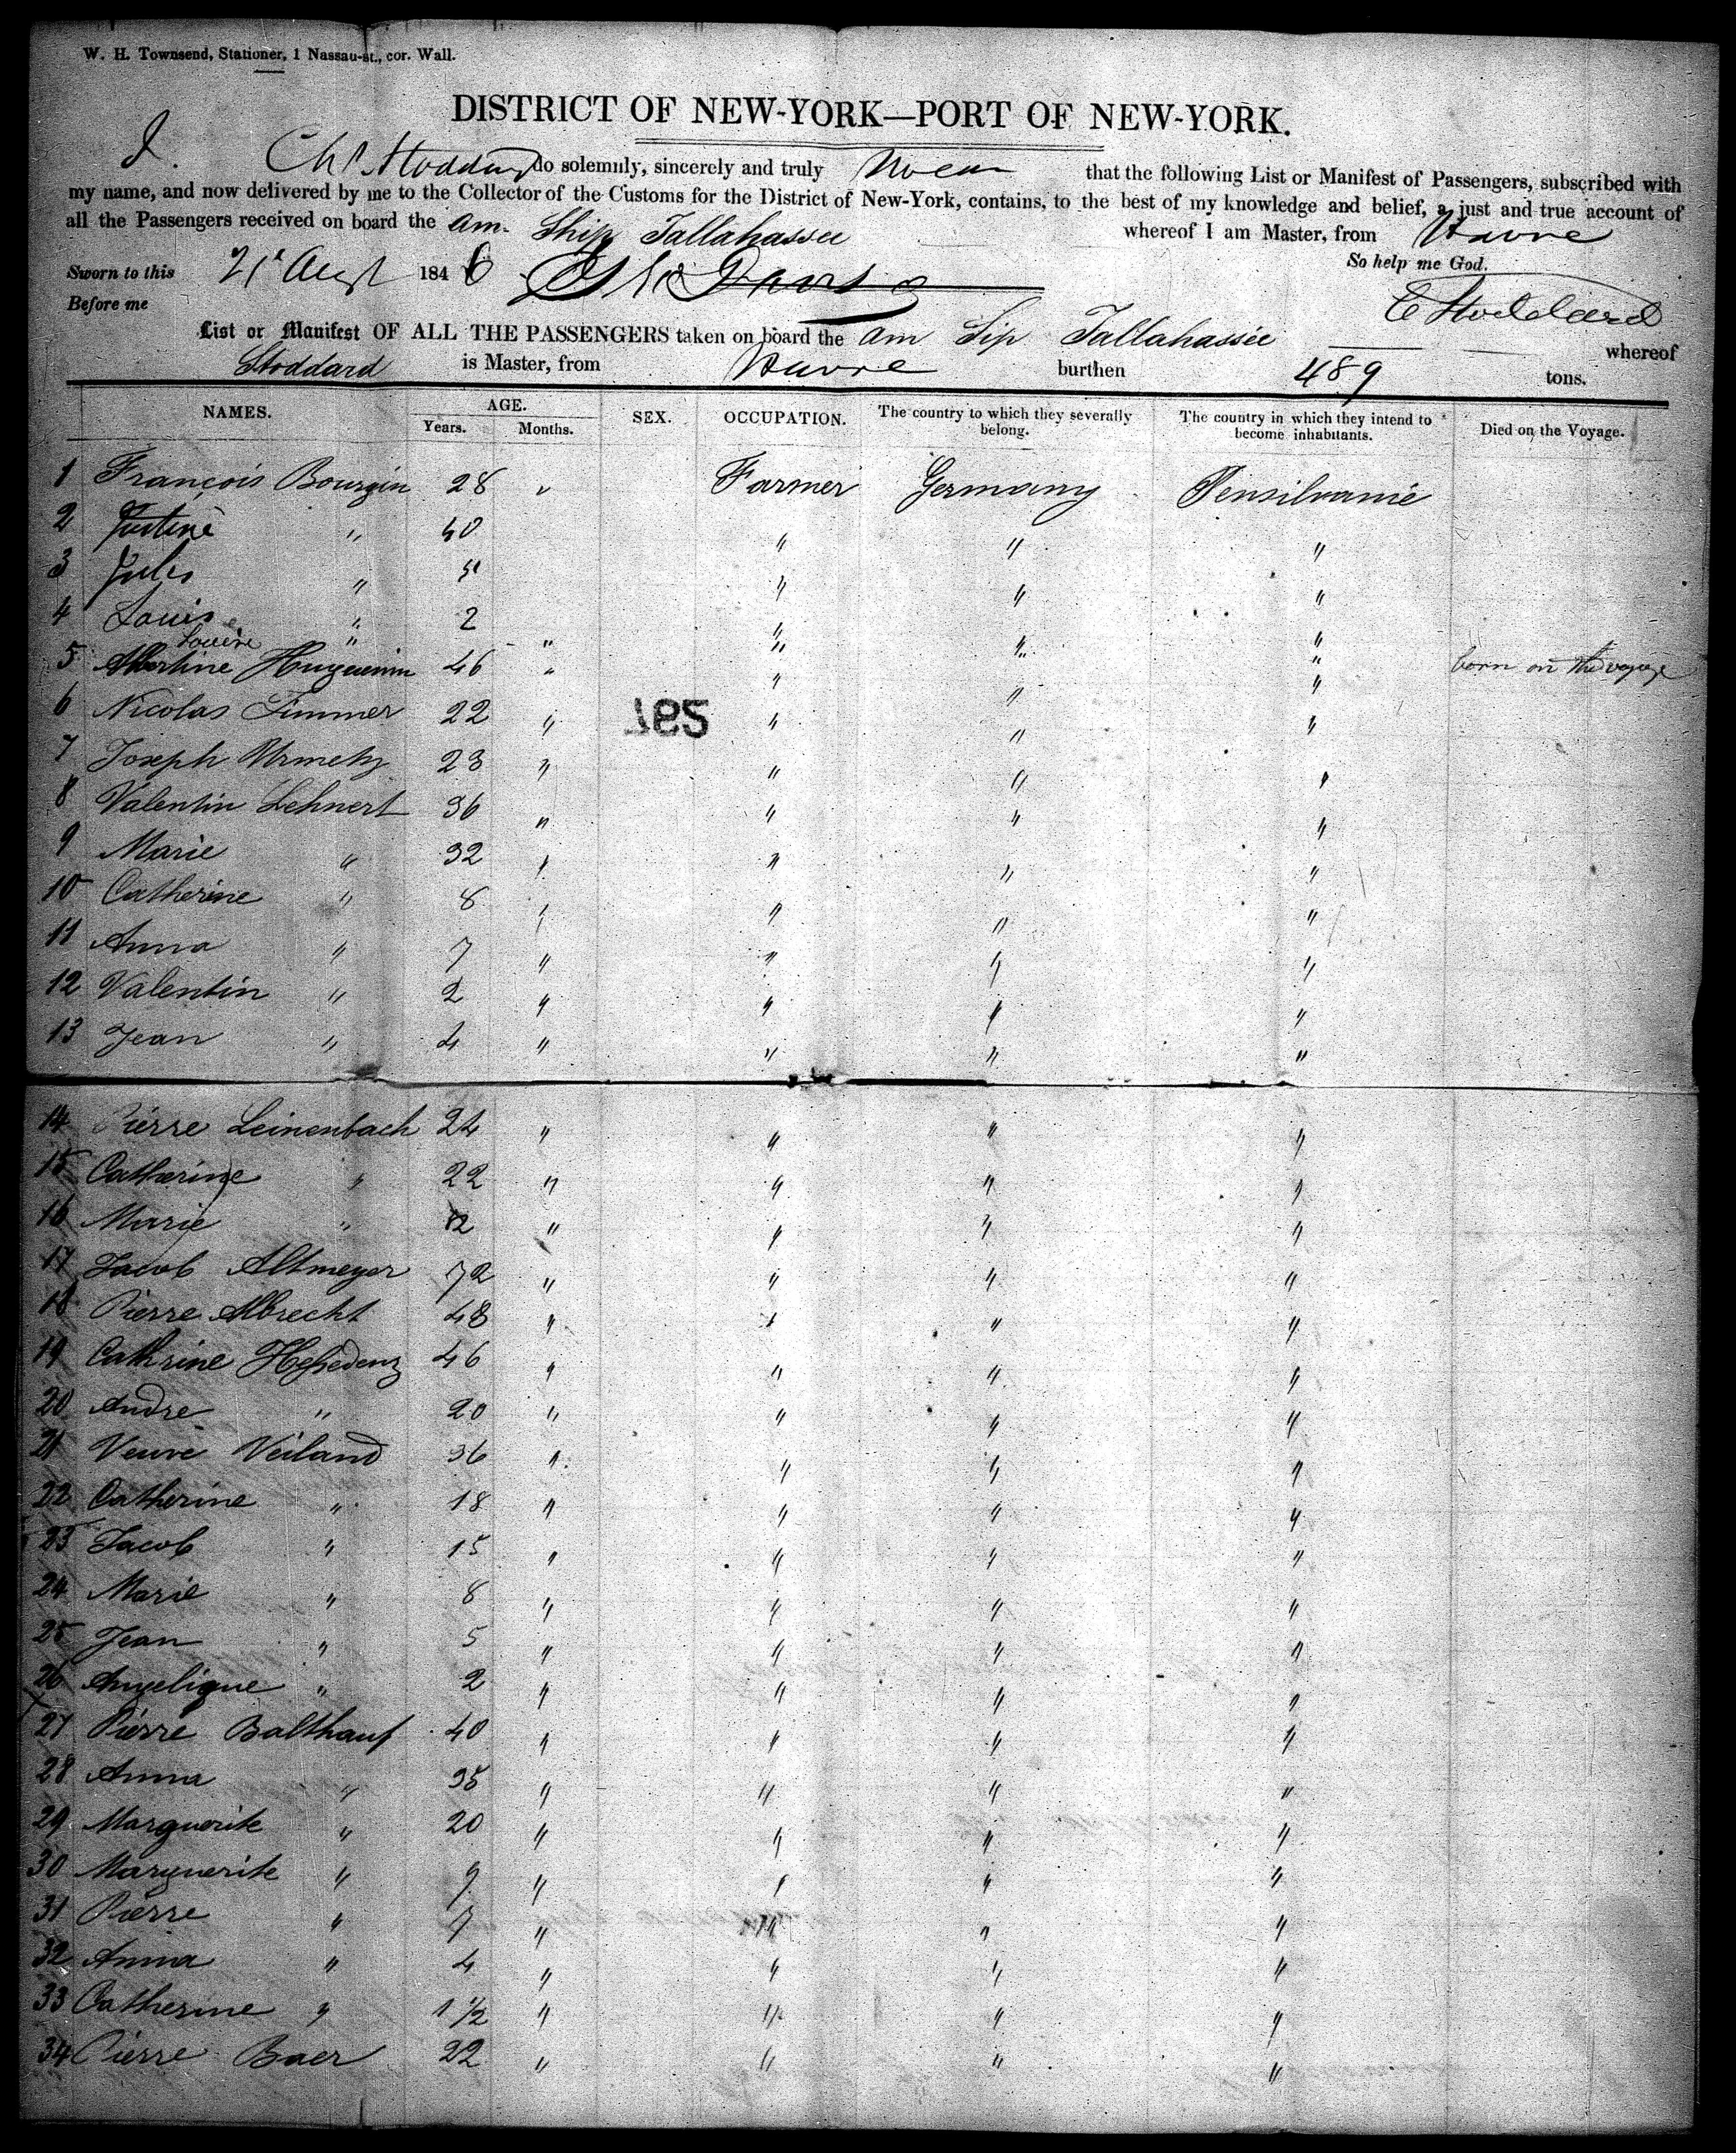 W. H. Townsend, Stationer, 1 Nassau-st., cor. Wall.
DISTRICT OF NEW-YORK—PORT OF NEW-YORK.
I, Chs Stoddard do solemnly, sincerely and truly swear that the following List or Manifest of Passengers, subscribed with
my name, and now delivered by me to the Collector of the Customs for the District of New-York, contains, to the best of my knowledge and belief, a just and true account of
all the Passengers received on board the Am. Ship Tallahassee whereof I am Master, from Havre
Sworn to this 21st Augt 1846 So help me God.
Before me C Stoddard
List or Manifest OF ALL THE PASSENGERS taken on board the Am Sip Tallahassée whereof
Stoddard is Master, from Havre burthen 489 tons.
NAMES. AGE. Years. Months. SEX. OCCUPATION. The country to which they severally belong. The country in which they intend to become inhabitants. Died on the Voyage.
1 François Bourgin 28 " Farmer Germany Pensilvanie
2 Justine " 40 " " "
3 Jules " " " "
4 Louis " 2 " " "
Louise " " " " " born on the voyage
5 Albertine Huguenin 46 " " " "
6 Nicolas Simmer 22 " " " "
192
7 Joseph Urmetz 23 " " " "
8 Valentin Lehnert 36 " " " "
9 Marie " 32 " " " "
10 Catherine " 8 " " " "
11 Anna " 7 " " " "
12 Valentin " 2 " " " "
13 Jean " 4 " " " "
14 Pierre Leinenbach 24 " " " "
15 Catherine " 22 " " " "
16 Marie " " " " "
17 Jacob Altmeyer 72 " " " "
18 Pierre Albrecht 48 " " " "
19 Cathrine Hessedenz 46 " " " "
20 André " 20 " " " "
21 Veuve Veiland 36 " " " "
22 Catherine " 18 " " " "
23 Jacob " 15 " " " "
24 Marie " 8 " " " "
25 Jean " 5 " " " "
26 Angelique " 2 " " " "
27 Pierre Balthauf 40 " " " "
28 Anna " 35 " " " "
29 Marguerite " 20 " " " "
30 Marguerite " 9 " " " "
31 Pierre " 7 " " " "
32 Anna " 4 " " " "
33 Catherine " 1 1/2 " " " "
34 Pierre Baer 22 " " " "